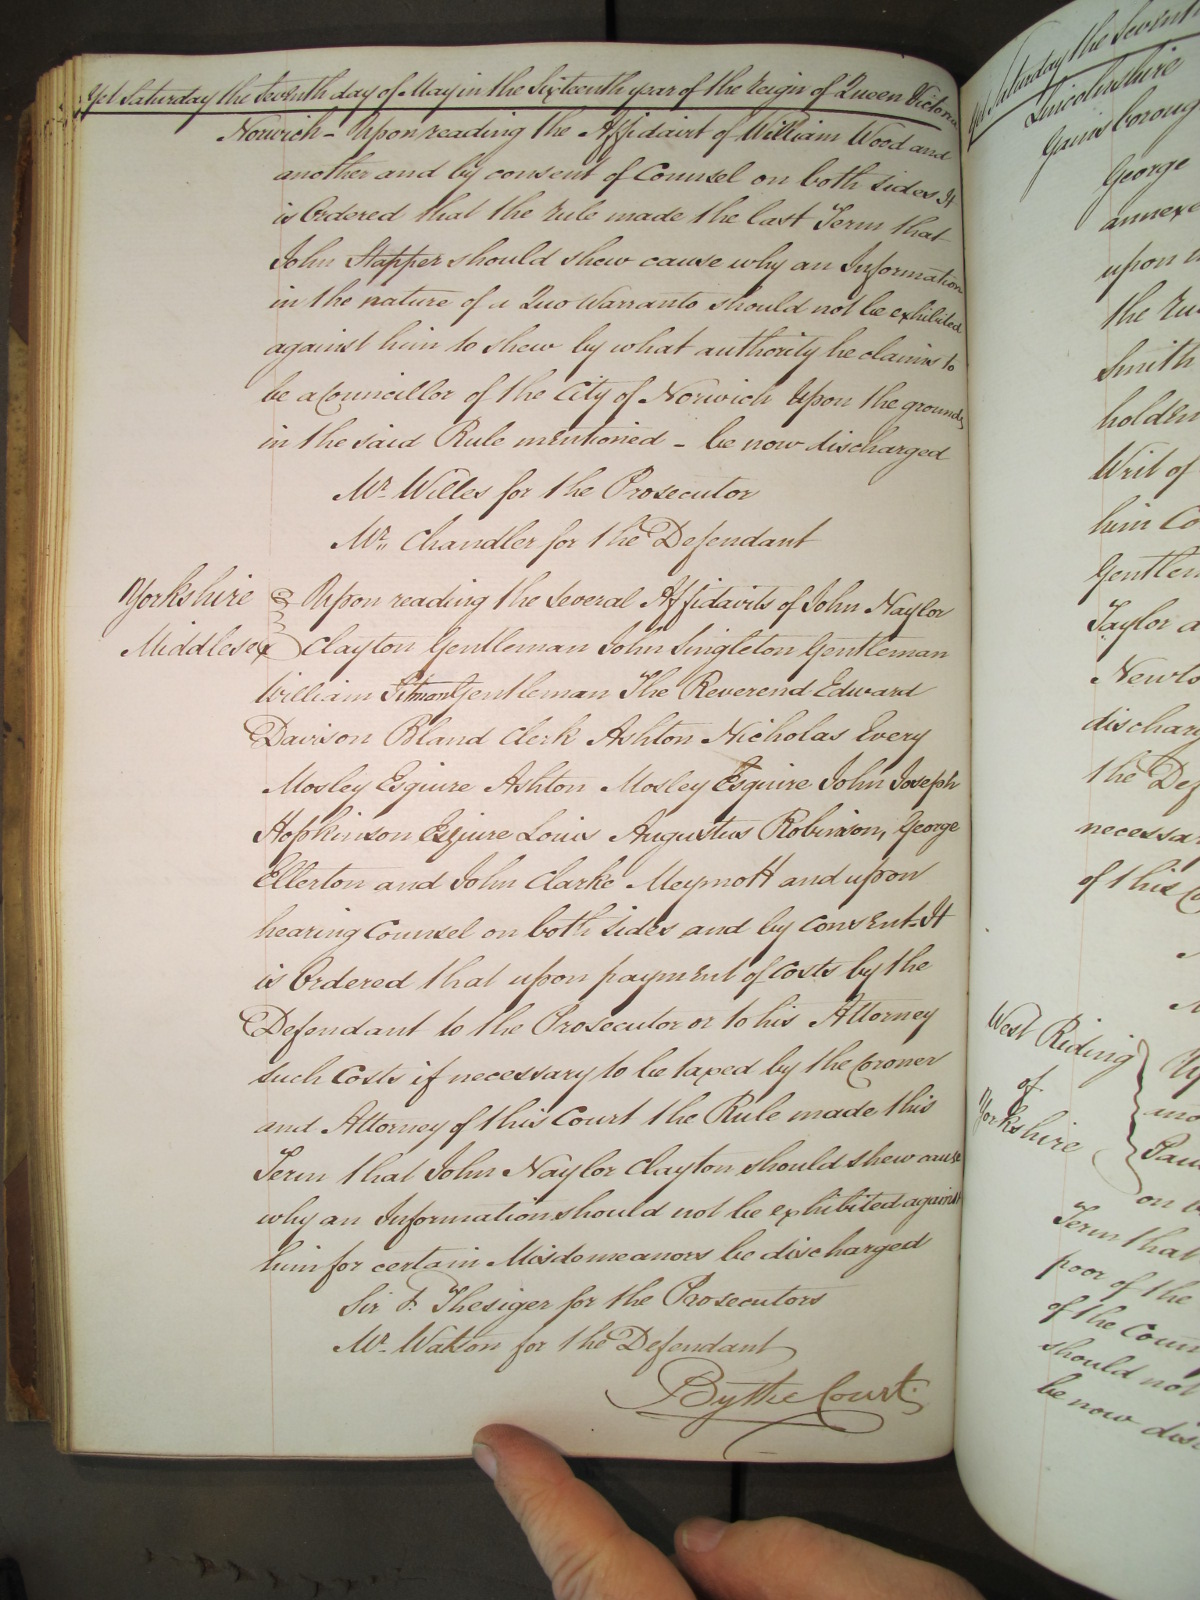 Yet Saturday the Seventh day of May in the Sixteenth year of the Reign of Queen Victoria
Norwich - Upon reading the Affidavit of William Wood and
another and by consent of Counsel on both sides It
is Ordered that the rule made the last Term that
John Stapper should shew cause why an Information
in the nature of a Quo Warranto should not be exhibited
against him to shew by what authority he claims to
be a Councillor of the City of Norwich Upon the grounds
in the said Rule mentioned - be now discharged
Mr. Willes for the Prosecutor
Mr. Chandler for the Defendant
Yorkshire Upon reading the several Affidavits of John Naylor
Middlesex Clayton Gentleman John Singleton Gentleman
William Pitman Gentleman The Reverend Edward
Davison Bland Clerk Ashton Nicholas Every
Mosley Esquire Ashton Mosley Esquire John Joseph
Hopkinson Esquire Louis Augustus Robinson, George
Ellerton and John Clarke Meymott and upon
hearing Counsel on both sides and by consent It
is Ordered that upon payment of Costs by the
Defendant to the Prosecutor or to his Attorney
such Costs if necessary to be taxed by the Coroner
and Attorney of this Court the Rule made this
Term that John Naylor Clayton should shew cause
why an Information should not be exhibited against
him for certain Misdemeanors be discharged
Sir F. Thesiger for the Prosecutors
Mr. Watson for the Defendant
By the Court
Yet Saturday the Seventh
Lincolnshire
Gainsboroug
George
annexe
upon
the Ru
Smith
holden
Writ of
him Co
Gentlem
Taylor a
Newto
discharg
the Def
necessa
of this Co
West Riding
of
Yorkshire
Up
ano
Pau
on b
Term that
poor of the
of the Coun
should not
be now disc